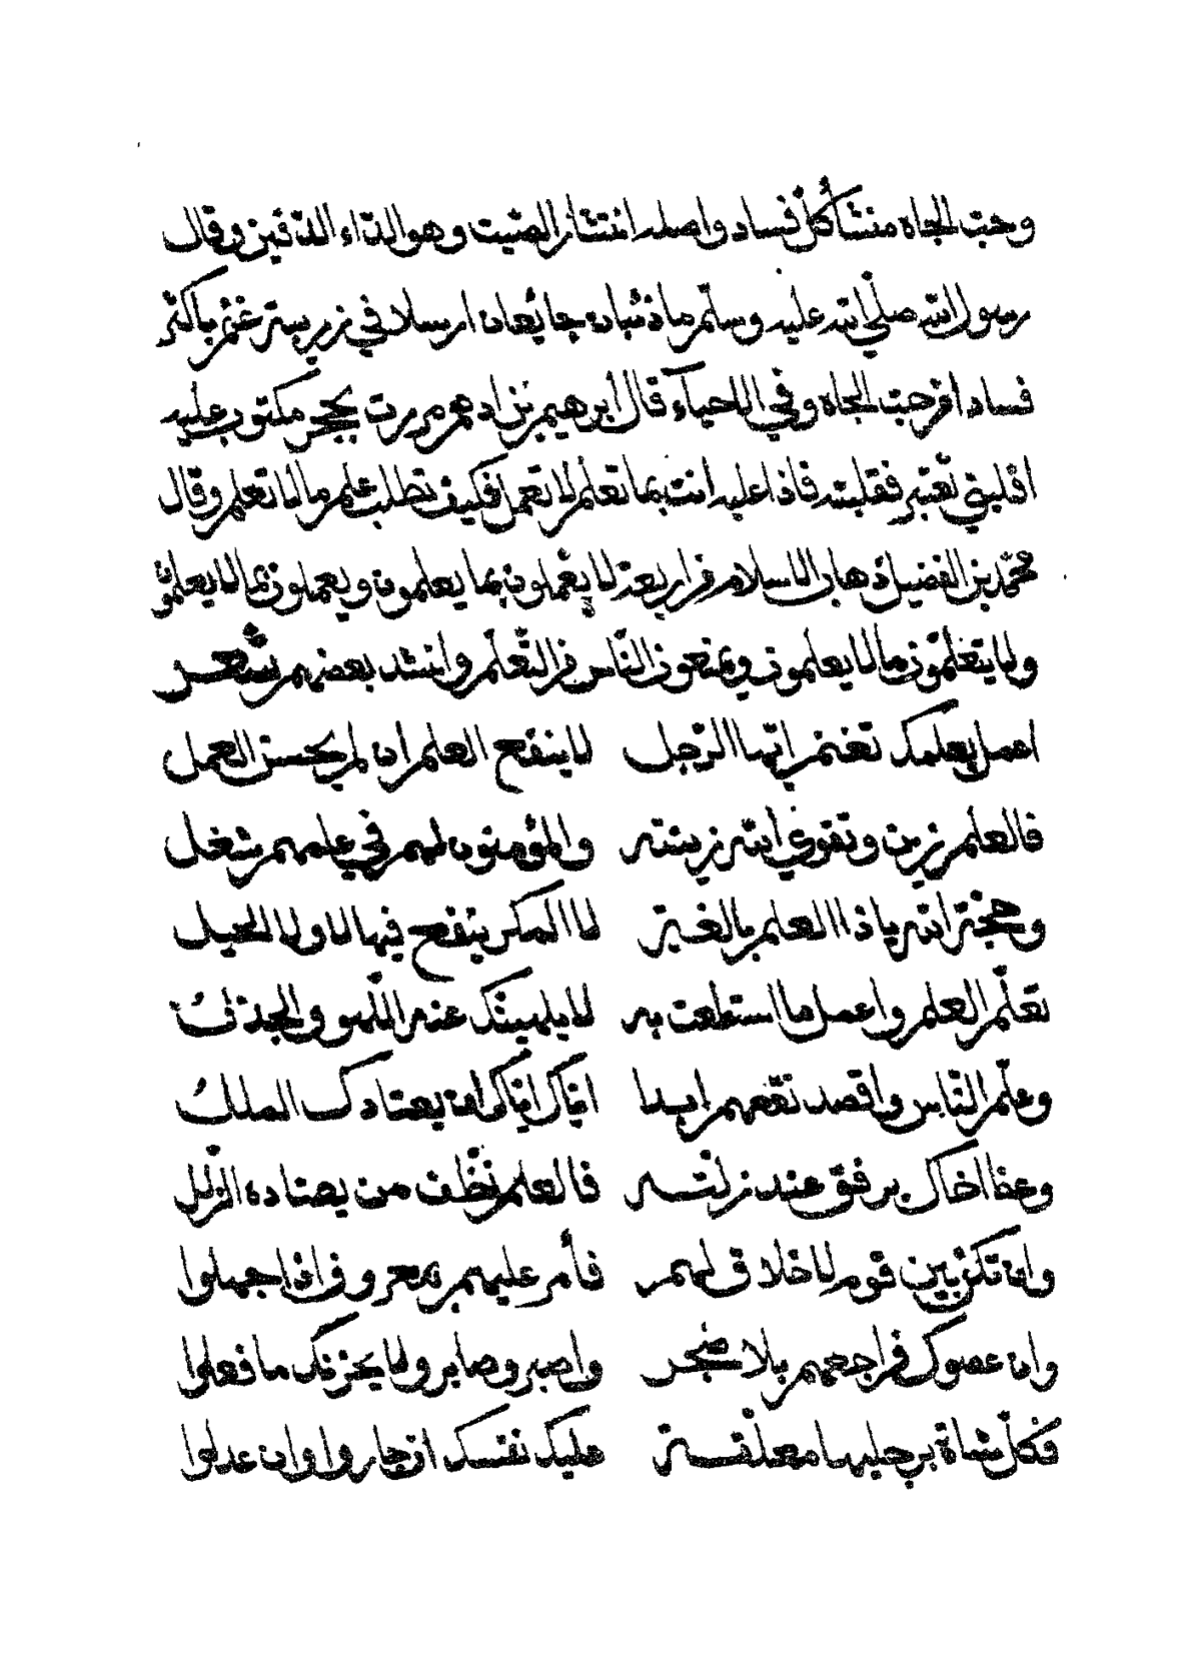 وحبّ الجاه منشأ كلّ فساد واصله انتشار الصّيت وهو الدّاء الدّفين وقال
رسول الله صلّي الله عليه وسلّم ما ذئبان جايعان ارسلا في زريبة غنم باكثر
فسادا من حبّ الجاه وفي الاحياء قال أبرهيم بن ادهم مررت بحجر مكتوب عليه
اقلبني تعتبر فقلبته فاذا عليه انت بما تعلم لا تعمل فكيف تطلب علم ما لا تعلم وقال
محمّد بن الفضيل ذهاب الاسلام من اربعة لا يعملون بما يعلمون ويعملون بما لا يعلمون
ولا يتعلّمون ما لا يعلمون ويمنعون النّاس من التّعلّم وانشد بعضهم شعر
اعمل بعلمك تغنم ايّها الرّجل لا ينفع العلم ان لم يحسن العمل
فالعلم زين وتقوي الله زينته والمؤمنون لهم في علمهم شغل
وحجّة الله يا ذا العلم بالغة لا المكر ينفع فيها لا ولا الحيل
تعلّم العلم واعمل ما استطعت به لا يلهينّك عنه اللّهو والجذل
وعلّم النّاس واقصد نفعهم ابدا ايّاك ايّاك ان يعتادك الملل
وعظ اخاك برفق عند زلّته فالعلم يعطف من يعتاده الزّلل
وان تكن بين قوم لا خلاق لهم فأمر عليهم بمعروف اذا جهلوا
وان عصوك فراجعهم بلا ضجر واصبر وصابر ولا يحزنك ما فعلوا
فكلّ شاة برجليها معلّقة عليك نفسك ان جاروا وان عدلوا